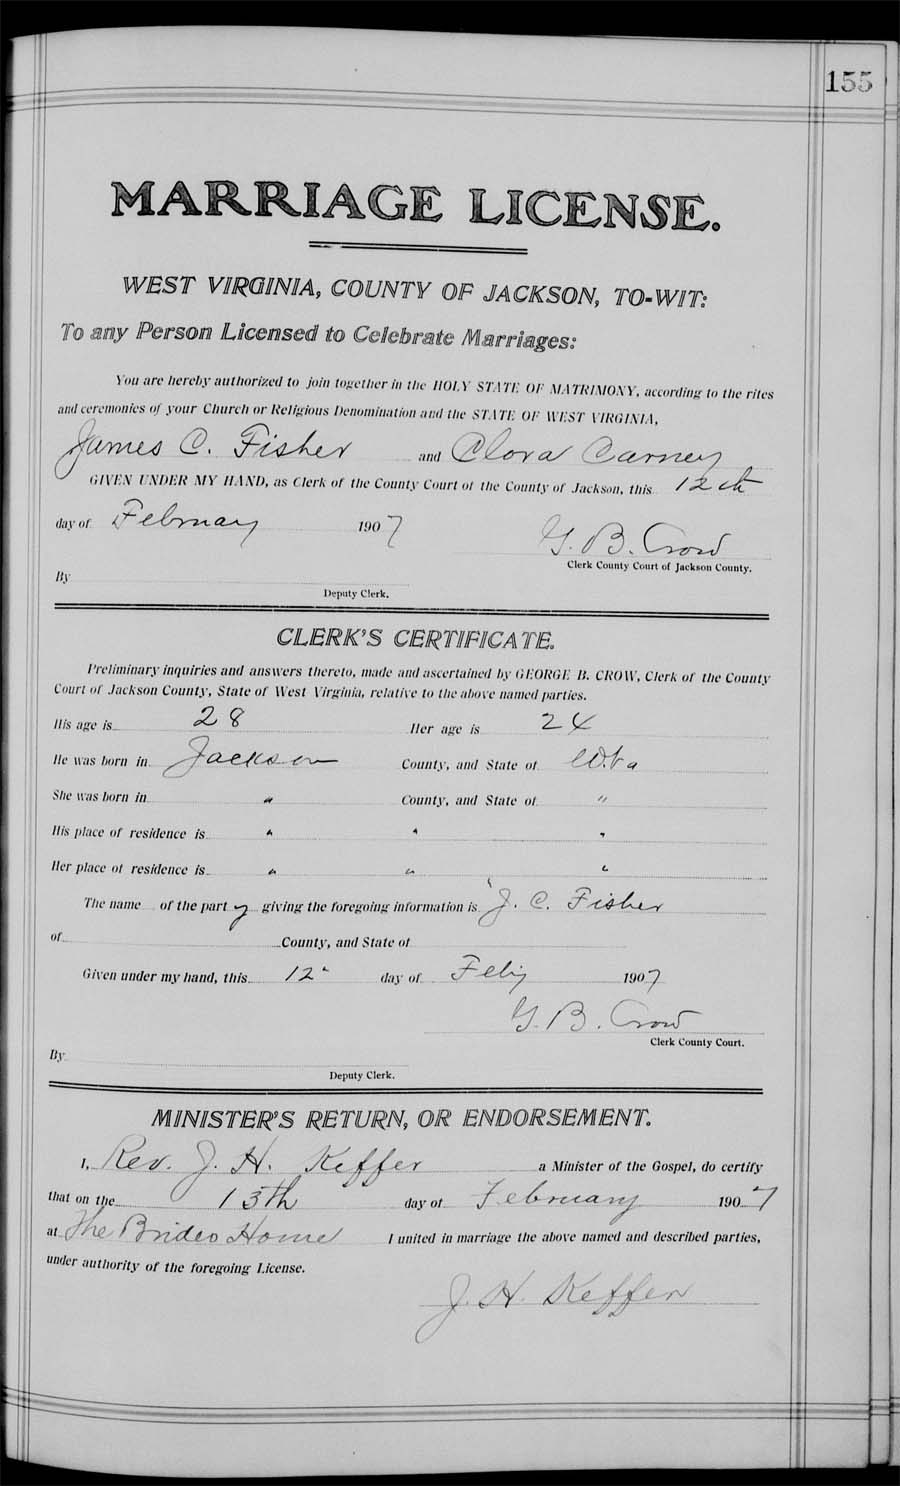 155
MARRIAGE LICENSE.
WEST VIRGINIA, COUNTY OF JACKSON, TO-WIT:
To any Person Licensed to Celebrate Marriages:
You are hereby authorized to join together in the HOLY STATE OF MATRIMONY, according to the rites
and ceremonies of your Church or Religious Denomination and the STATE OF WEST VIRGINIA,
James C. Fisher and Clora Carney
GIVEN UNDER MY HAND, as Clerk of the County Court of the County of Jackson, this 12th
day of February 1907 G. B. Crow
Clerk County Court of Jackson County.
By
Deputy Clerk.
CLERK'S CERTIFICATE.
Preliminary inquiries and answers thereto, made and ascertained by GEORGE B. CROW, Clerk of the County
Court of Jackson County, State of West Virginia, relative to the above named parties.
His age is 28 Her age is 24
He was born in Jackson County, and State of W.Va
She was born in " County, and State of "
His place of residence is " " "
Her place of residence is " " "
The name of the party giving the foregoing information is J. C. Fisher
of County, and State of
Given under my hand, this 12" day of Feby 1907
G. B. Crow
Clerk County Court.
By
Deputy Clerk.
MINISTER'S RETURN, OR ENDORSEMENT.
I, Rev. J. H. Keffer a Minister of the Gospel, do certify
that on the 13th day of February 1907
at The Brides Home I united in marriage the above named and described parties,
under authority of the foregoing License.
J. H. Keffer